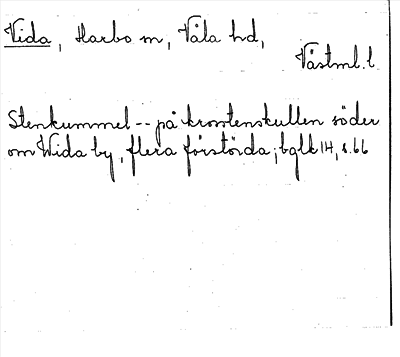 Vida, Harbo sn, Våla hd,
Västml. l
Stenkummel -- på krosstenskullen söder
om Wida by, flera förstörda; bglk 14, s. 66